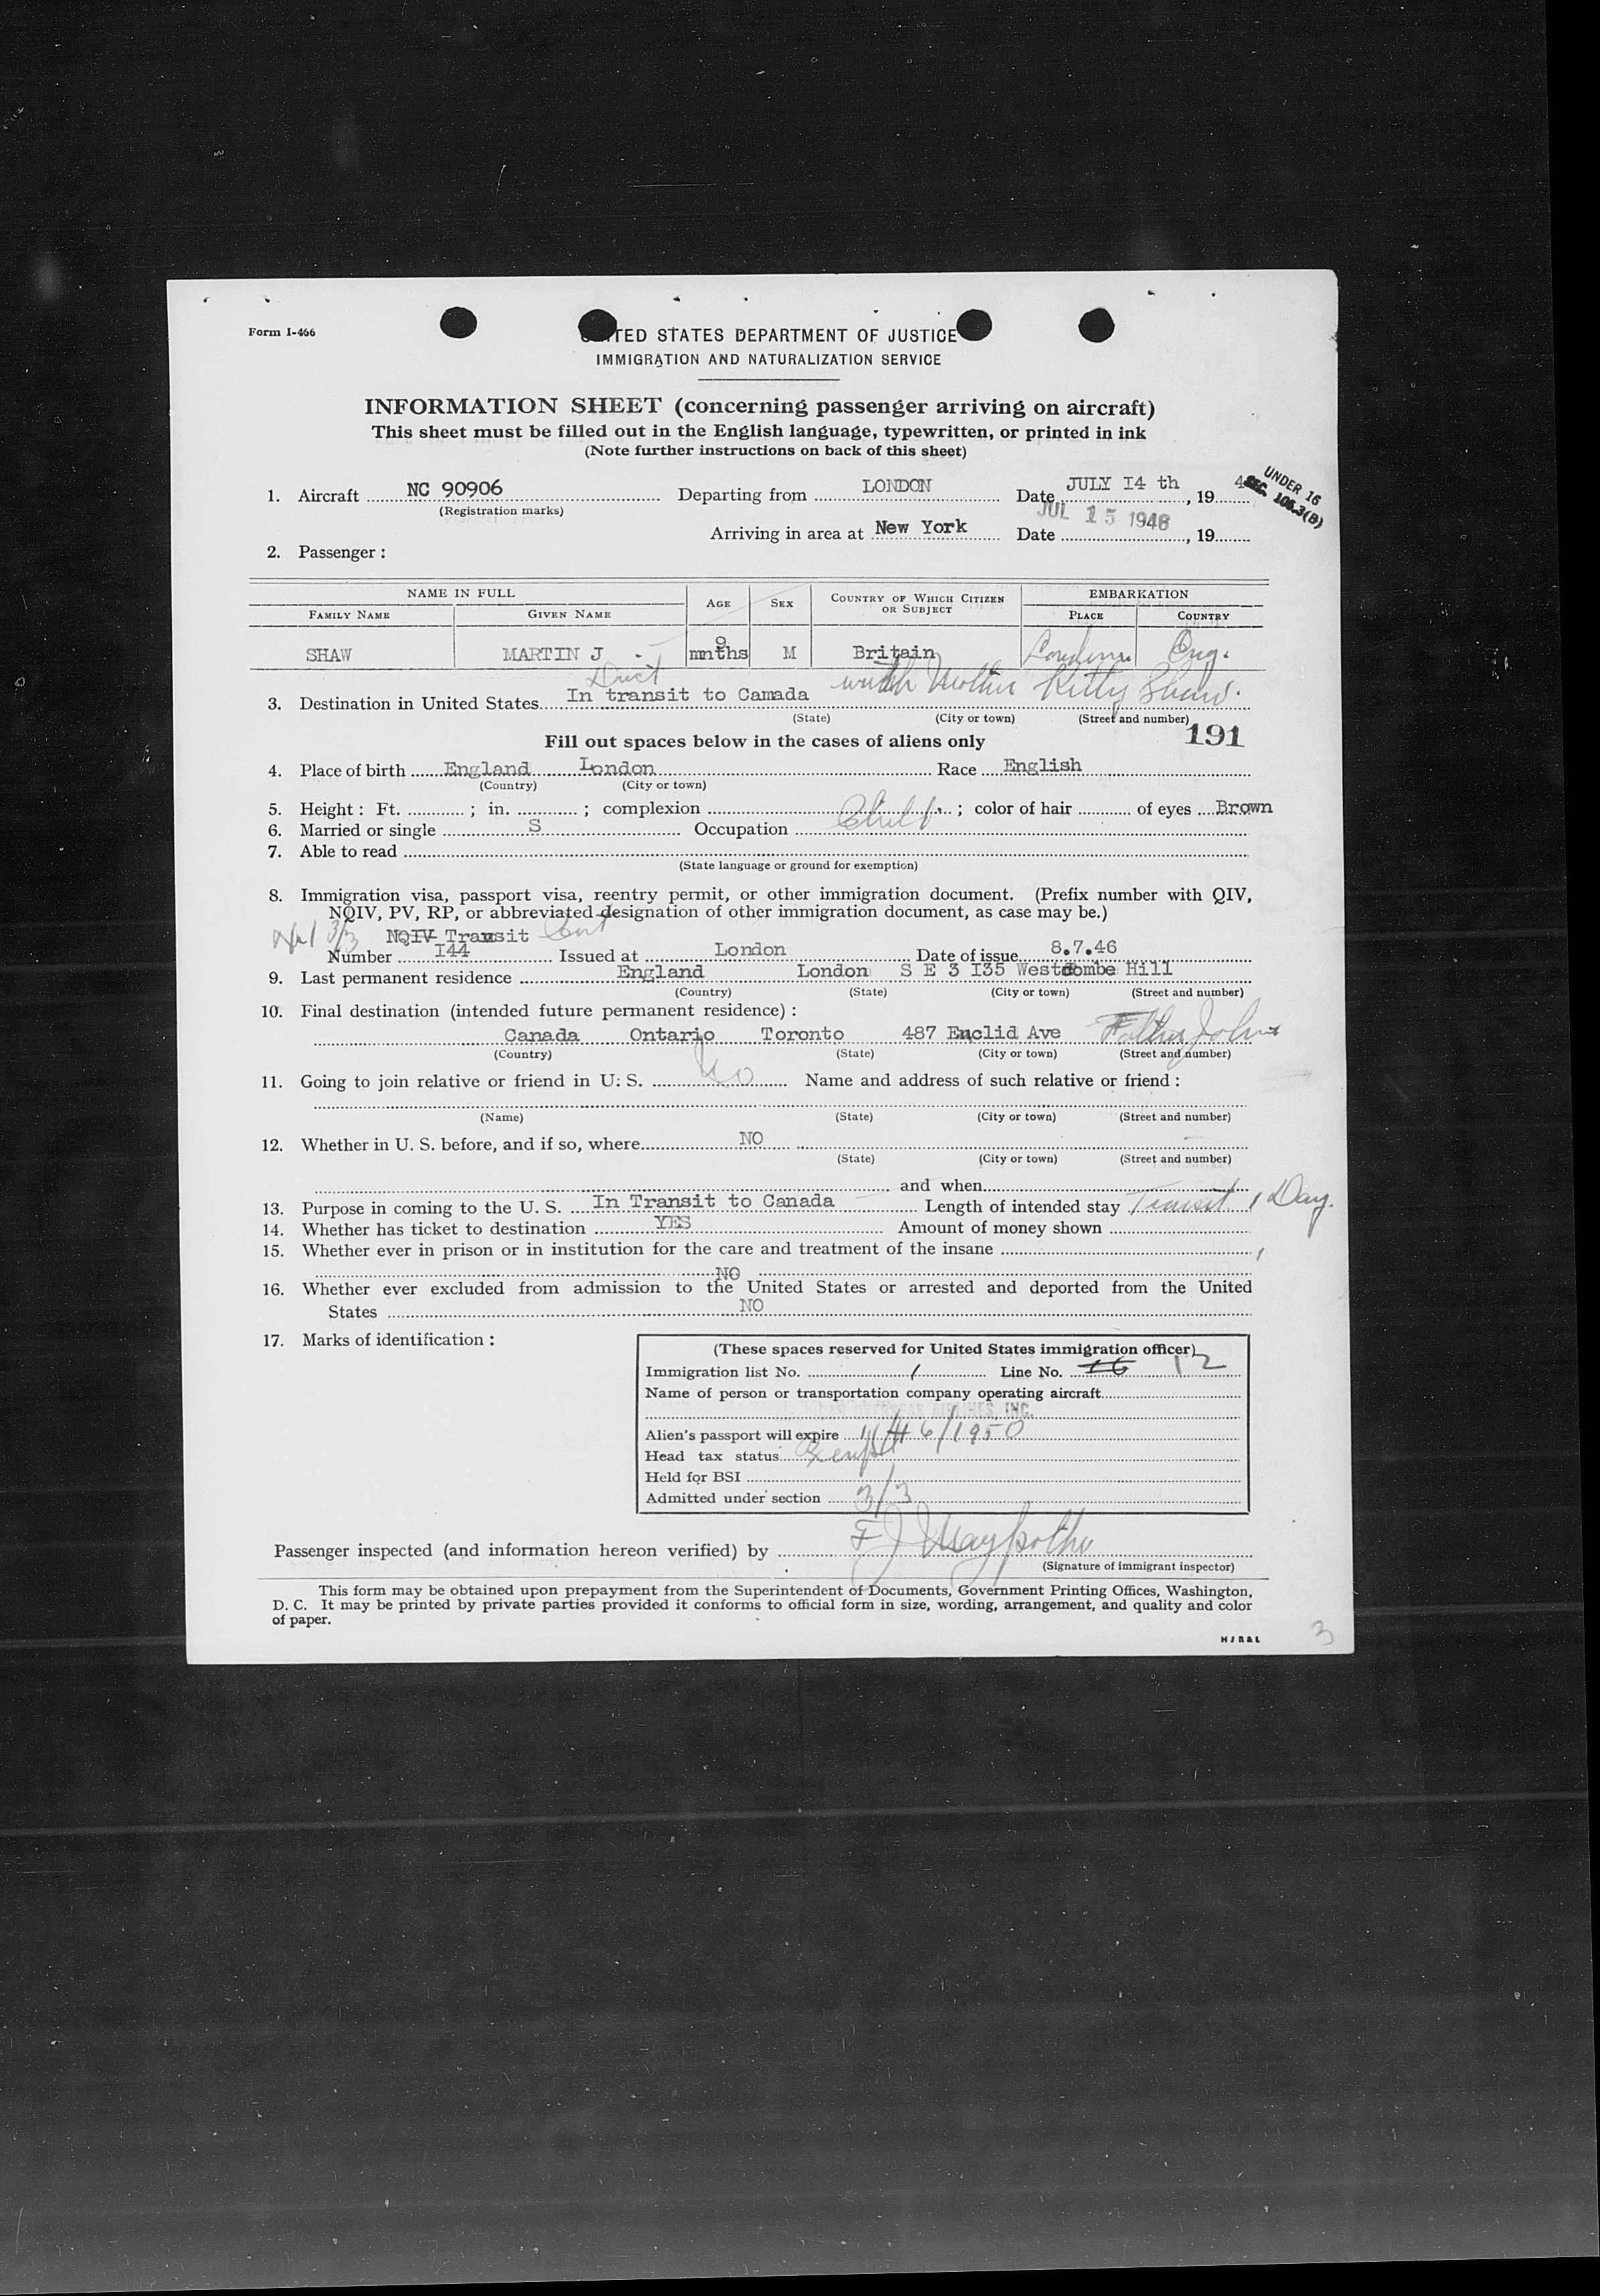 Form I-466
UNITED STATES DEPARTMENT OF JUSTICE
IMMIGRATION AND NATURALIZATION SERVICE
INFORMATION SHEET (concerning passenger arriving on aircraft)
This sheet must be filled out in the English language, typewritten, or printed in ink
(Note further instructions on back of this sheet)
UNDER 16
SEC. 106.3(B)
1. Aircraft NC 90906 Departing from LONDON Date JULY I4 th, 19 4
(Registration marks)
JUL 15 1946
Arriving in area at New York Date , 19
2. Passenger:
NAME IN FULL AGE SEX COUNTRY OF WHICH CITIZEN OR SUBJECT EMBARKATION
FAMILY NAME GIVEN NAME PLACE COUNTRY
SHAW MARTIN J 9 mnths M Britain London. Eng.
3. Destination in United States In transit to Camada with Mother Kitty Shaw.
(State) (City or town) (Street and number)
191
Fill out spaces below in the cases of aliens only
4. Place of birth England London Race English
(Country) (City or town)
5. Height: Ft. ; in. ; complexion ; color of hair of eyes Brown
6. Married or single S Occupation Child
7. Able to read
(State language or ground for exemption)
8. Immigration visa, passport visa, reentry permit, or other immigration document. (Prefix number with QIV,
NQIV, PV, RP, or abbreviated designation of other immigration document, as case may be.)
3/3 NQIV Transit Cert
Number I44 Issued at London Date of issue 8.7.46
9. Last permanent residence England London S E 3 I35 Westcombe Hill
(Country) (State) (City or town) (Street and number)
10. Final destination (intended future permanent residence):
Canada Ontario Toronto 487 Enclid Ave Father John
(Country) (State) (City or town) (Street and number)
11. Going to join relative or friend in U. S. No Name and address of such relative or friend:
(Name) (State) (City or town) (Street and number)
12. Whether in U. S. before, and if so, where NO
(State) (City or town) (Street and number)
and when
13. Purpose in coming to the U. S. In Transit to Canada Length of intended stay Transit 1 Day.
14. Whether has ticket to destination YES Amount of money shown
15. Whether ever in prison or in institution for the care and treatment of the insane
NO
16. Whether ever excluded from admission to the United States or arrested and deported from the United
States NO
17. Marks of identification:
(These spaces reserved for United States immigration officer)
Immigration list No. 1 Line No. 16 12
Name of person or transportation company operating aircraft
OVERSEAS AIRLINES, INC.
Alien's passport will expire 6/1950
Head tax status Exempt
Held for BSI
Admitted under section 3/3
Passenger inspected (and information hereon verified) by
(Signature of immigrant inspector)
This form may be obtained upon prepayment from the Superintendent of Documents, Government Printing Offices, Washington,
D. C. It may be printed by private parties provided it conforms to official form in size, wording, arrangement, and quality and color
of paper.
3